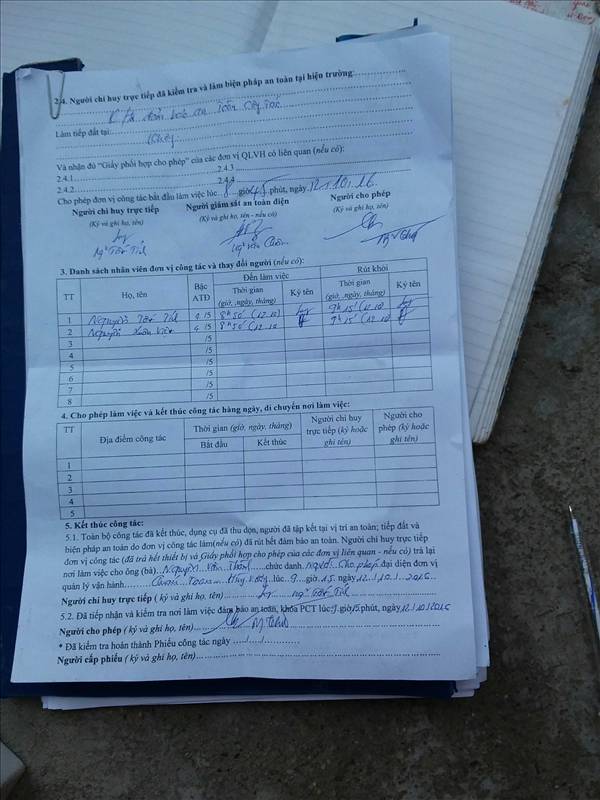 2.4. Người chỉ huy trực tiếp đã kiểm tra và làm biện pháp an toàn tại hiện trường:
đảm bảo an toàn công tác
Làm tiếp đất tại:
Không
Và nhận đủ "Giấy phối hợp cho phép" của các đơn vị QLVH có liên quan (nếu có):
2.4.1 2.4.3
2.4.2 2.4.4
Cho phép đơn vị công tác bắt đầu làm việc lúc 8 giờ 45 phút, ngày 12.10.16
Người chỉ huy trực tiếp Người giám sát an toàn điện Người cho phép
(Ký và ghi họ, tên) (Ký và ghi họ, tên - nếu có) (Ký và ghi họ, tên)
3. Danh sách nhân viên đơn vị công tác và thay đổi người (nếu có):
TT Họ, tên Bậc ATĐ Đến làm việc Rút khỏi
Thời gian (giờ, ngày, tháng) Ký tên Thời gian (giờ, ngày, tháng) Ký tên
1 Nguyễn 4/5 8h50' (12.10) 9h15' (12.10)
2 Nguyễn Xuân 4/5 8h50' (12.10 9h15' (12.10
3 /5
4 /5
5 /5
6 /5
7 /5
8 /5
4. Cho phép làm việc và kết thúc công tác hàng ngày, di chuyển nơi làm việc:
TT Địa điểm công tác Thời gian (giờ, ngày, tháng) Người chỉ huy trực tiếp (ký hoặc ghi tên) Người cho phép (ký hoặc ghi tên)
Bắt đầu Kết thúc
1
2
3
4
5
5. Kết thúc công tác:
5.1. Toàn bộ công tác đã kết thúc, dụng cụ đã thu dọn, người đã tập kết tại vị trí an toàn; tiếp đất và
biện pháp an toàn do đơn vị công tác làm(nếu có) đã rút hết đảm bảo an toàn. Người chỉ huy trực tiếp
đơn vị công tác (đã trả hết thiết bị và Giấy phối hợp cho phép của các đơn vị liên quan - nếu có) trả lại
nơi làm việc cho ông (bà) Nguyễn Văn chức danh Người Cho phép đại diện đơn vị
quản lý vận hành lúc 9 giờ 15, ngày 12/10/2016
Người chỉ huy trực tiếp (ký và ghi họ, tên)
5.2. Đã tiếp nhận và kiểm tra nơi làm việc đảm bảo an toàn, khóa PCT lúc 9 giờ 15 phút, ngày 12/10/2016
Người cho phép (ký và ghi họ, tên)
* Đã kiểm tra hoàn thành Phiếu công tác ngày / /
Người cấp phiếu (ký và ghi họ, tên)